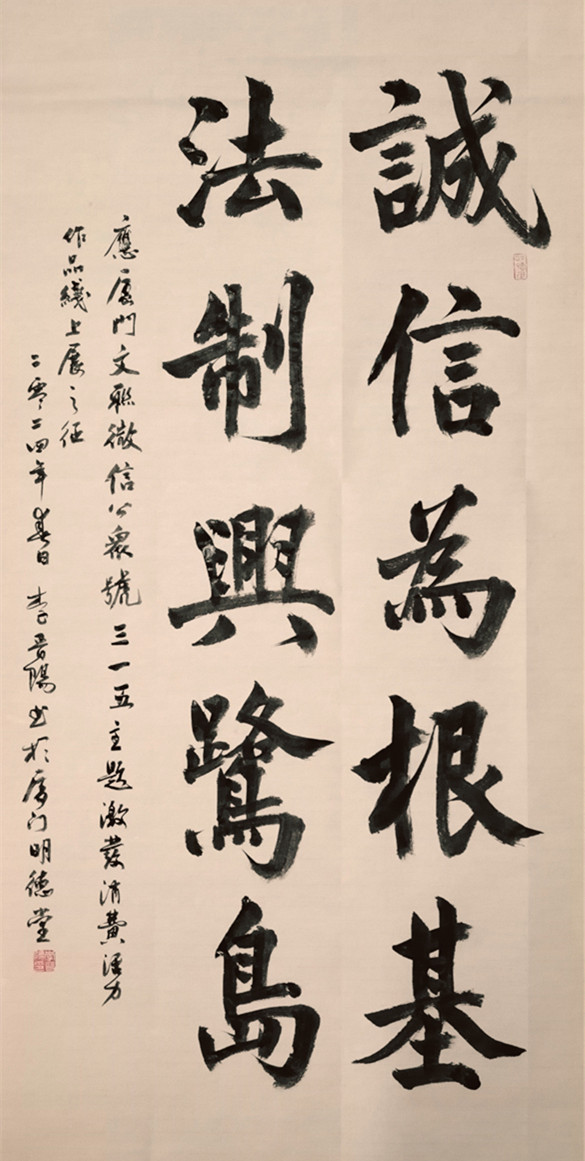 誠信為根基
法制興鷺島
應厦門文聯微信公衆號三一五主題激發消費活力
作品綫上展之征
二零二四年春日李晋陽书於厦门明德堂